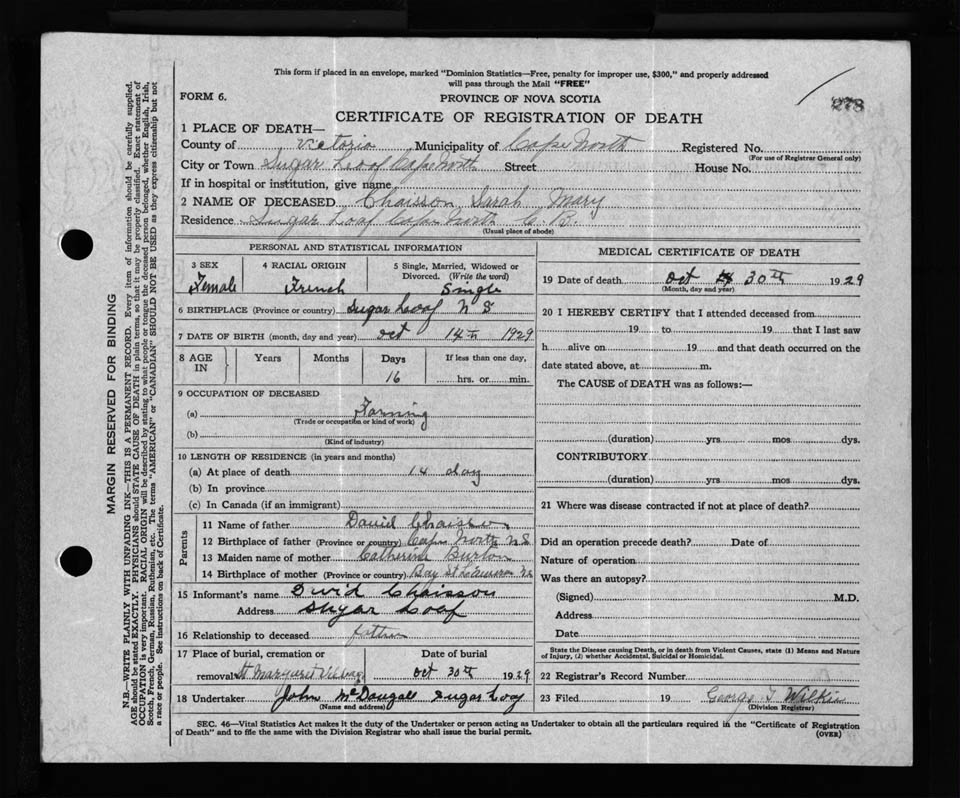 This form if placed in an envelope, marked "Dominion Statistics—Free, penalty for improper use, $300," and properly addressed
will pass through the Mail "FREE"
278
FORM 6.
PROVINCE OF NOVA SCOTIA
CERTIFICATE OF REGISTRATION OF DEATH
1 PLACE OF DEATH—
County of Victoria, Municipality of Cape North Registered No.
(For use of Registrar General only)
City or Town Sugar Loaf Cape North Street House No.
If in hospital or institution, give name
2 NAME OF DECEASED Chaisson Sarah Mary
Residence Sugar Loaf Cape North C. B.
(Usual place of abode)
PERSONAL AND STATISTICAL INFORMATION
3 SEX 4 RACIAL ORIGIN 5 Single, Married, Widowed or
Divorced. (Write the word)
Female French Single
6 BIRTHPLACE (Province or country) Sugar Loaf N S
7 DATE OF BIRTH (month, day and year) Oct 14th 1929
8 AGE IN Years Months Days If less than one day,
16 hrs. or min.
9 OCCUPATION OF DECEASED
(a) Farming
(Trade or occupation or kind of work)
(b)
(Kind of industry)
10 LENGTH OF RESIDENCE (in years and months)
(a) At place of death 14 day
(b) In province
(c) In Canada (if an immigrant)
Parents
11 Name of father David Chaisson
12 Birthplace of father (Province or country) Cape North N S
13 Maiden name of mother Catherine Burton
14 Birthplace of mother (Province or country) Bay St
15 Informant's name David Chaisson
Address Sugar Loaf
16 Relationship to deceased father
17 Place of burial, cremation or Date of burial
removal St Margaret Village Oct 30th 1929
18 Undertaker John McDougall Sugar Loaf
(Name and address)
MEDICAL CERTIFICATE OF DEATH
19 Date of death Oct 30th 1929
(Month, day and year)
20 I HEREBY CERTIFY that I attended deceased from
19 to 19 that I last saw
h alive on 19 and that death occurred on the
date stated above, at m.
The CAUSE of DEATH was as follows:—
(duration) yrs. mos. dys.
CONTRIBUTORY
(duration) yrs. mos. dys.
21 Where was disease contracted if not at place of death?
Did an operation precede death? Date of
Nature of operation
Was there an autopsy?
(Signed) M.D.
Address
Date
State the Disease causing Death, or in death from Violent Causes, state (1) Means and Nature
of Injury, (2) whether Accidental, Suicidal or Homicidal.
22 Registrar's Record Number
23 Filed 19 George T Wilkie
(Division Registrar)
SEC. 46—Vital Statistics Act makes it the duty of the Undertaker or person acting as Undertaker to obtain all the particulars required in the "Certificate of Registration
of Death" and to file the same with the Division Registrar who shall issue the burial permit.
(OVER)
MARGIN RESERVED FOR BINDING
N.B.—WRITE PLAINLY WITH UNFADING INK—THIS IS A PERMANENT RECORD. Every item of information should be carefully supplied.
AGE should be stated EXACTLY. PHYSICIANS should STATE CAUSE OF DEATH in plain terms, so that it may be properly classified. Exact statement of
OCCUPATION is very important. RACIAL ORIGIN will be described by stating to what people or tongue the deceased person belonged, whether English, Irish,
Scotch, French, German, Russian, Ruthenian, etc. The terms "AMERICAN" or "CANADIAN" SHOULD NOT BE USED as they express citizenship but not
a race or people. See instructions on back of Certificate.